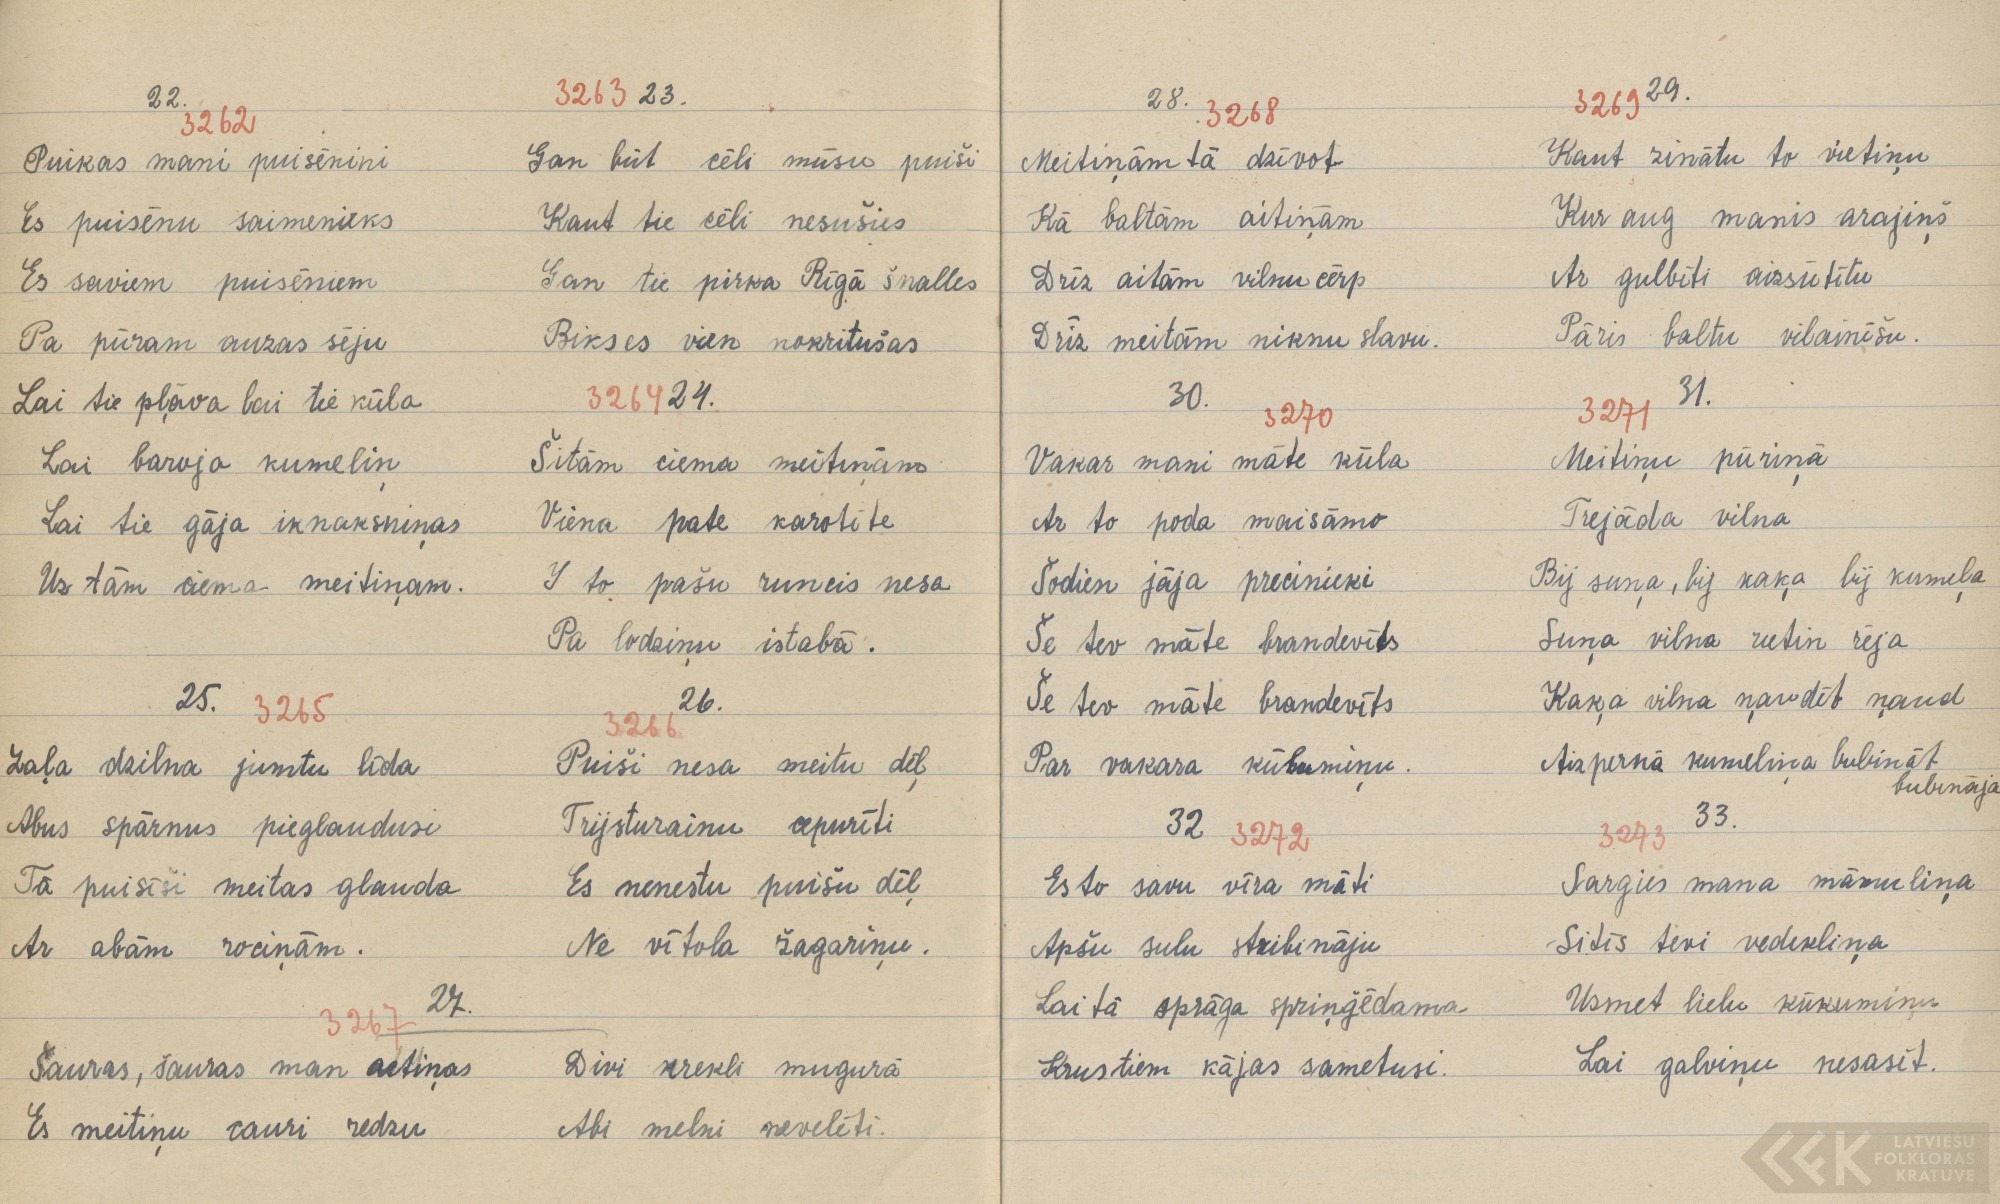 22.
3262
Puikas mani puisēnini
Es puisēnu saimenieks
Es saviem puisēniem
Pa pūram auzas sēju
Lai tie pļāva lai tie kūla
Lai baroja kumeliņ
Lai tie gāja iknaksniņas
Uz tām ciema meitiņam.
3263 23.
Gan būt cēli mūsu puiši
Kaut tie cēli nesušies
Gan tie pirka Rīgā šnalles
Bikses vien nokritušas
3264 24.
Šitām ciema meitiņām
Viena pate karotīte
I to pašu runcis nesa
Pa lodziņu istabā.
25. 3265
Zaļa dzilna jumtu līda
Abus spārnus pieglaudusi
Tā puisīši meitas glauda
Ar abām rociņām.
26.
3266
Puiši nesa meitu dēļ
Trijsturainu cepurīti
Es nenestu puišu dēļ
Ne vītola žagariņu.
27.
3267
Šauras, šauras man actiņas
Es meitiņu cauri redzu
Divi krekli mugurā
Abi melni nevelēti.
28. 3268
Meitiņām tā dzīvot
Kā baltām aitiņām
Drīz aitām vilnu cērp
Drīz meitām niknu slavu.
3269 29.
Kaut zinātu to vietiņu
Kur aug manis arajiņš
Ar gulbīti aizsūtītu
Pāris baltu vilainīšu.
30. 3270
Vakar mani māte kūla
Ar to poda maisāmo
Šodien jāja precinieki
Še tev māte brandevīts
Še tev māte brandevīts
Par vakara kūlumiņu.
3271 31.
Meitiņu pūriņā
Trejāda vilna
Bij suņa, bij kaķa bij kumeļa
Suņa vilna rietin rēja
Kaķa vilna ņaudēt ņaud
Aizpernā kumeliņa bubināt
bubināja
32 3272
Es to savu vīra māti
Apšu sulu stribināju
Lai tā sprāga spriņģēdama
Krustiem kājas sametusi.
3273 33.
Sargies mana māmuliņa
Sitīs tevi vedekliņa
Uzmet lielu kūkumiņu
Lai galviņu nesasit.
LATVIEŠU
FOLKLORAS
KRĀTUVE